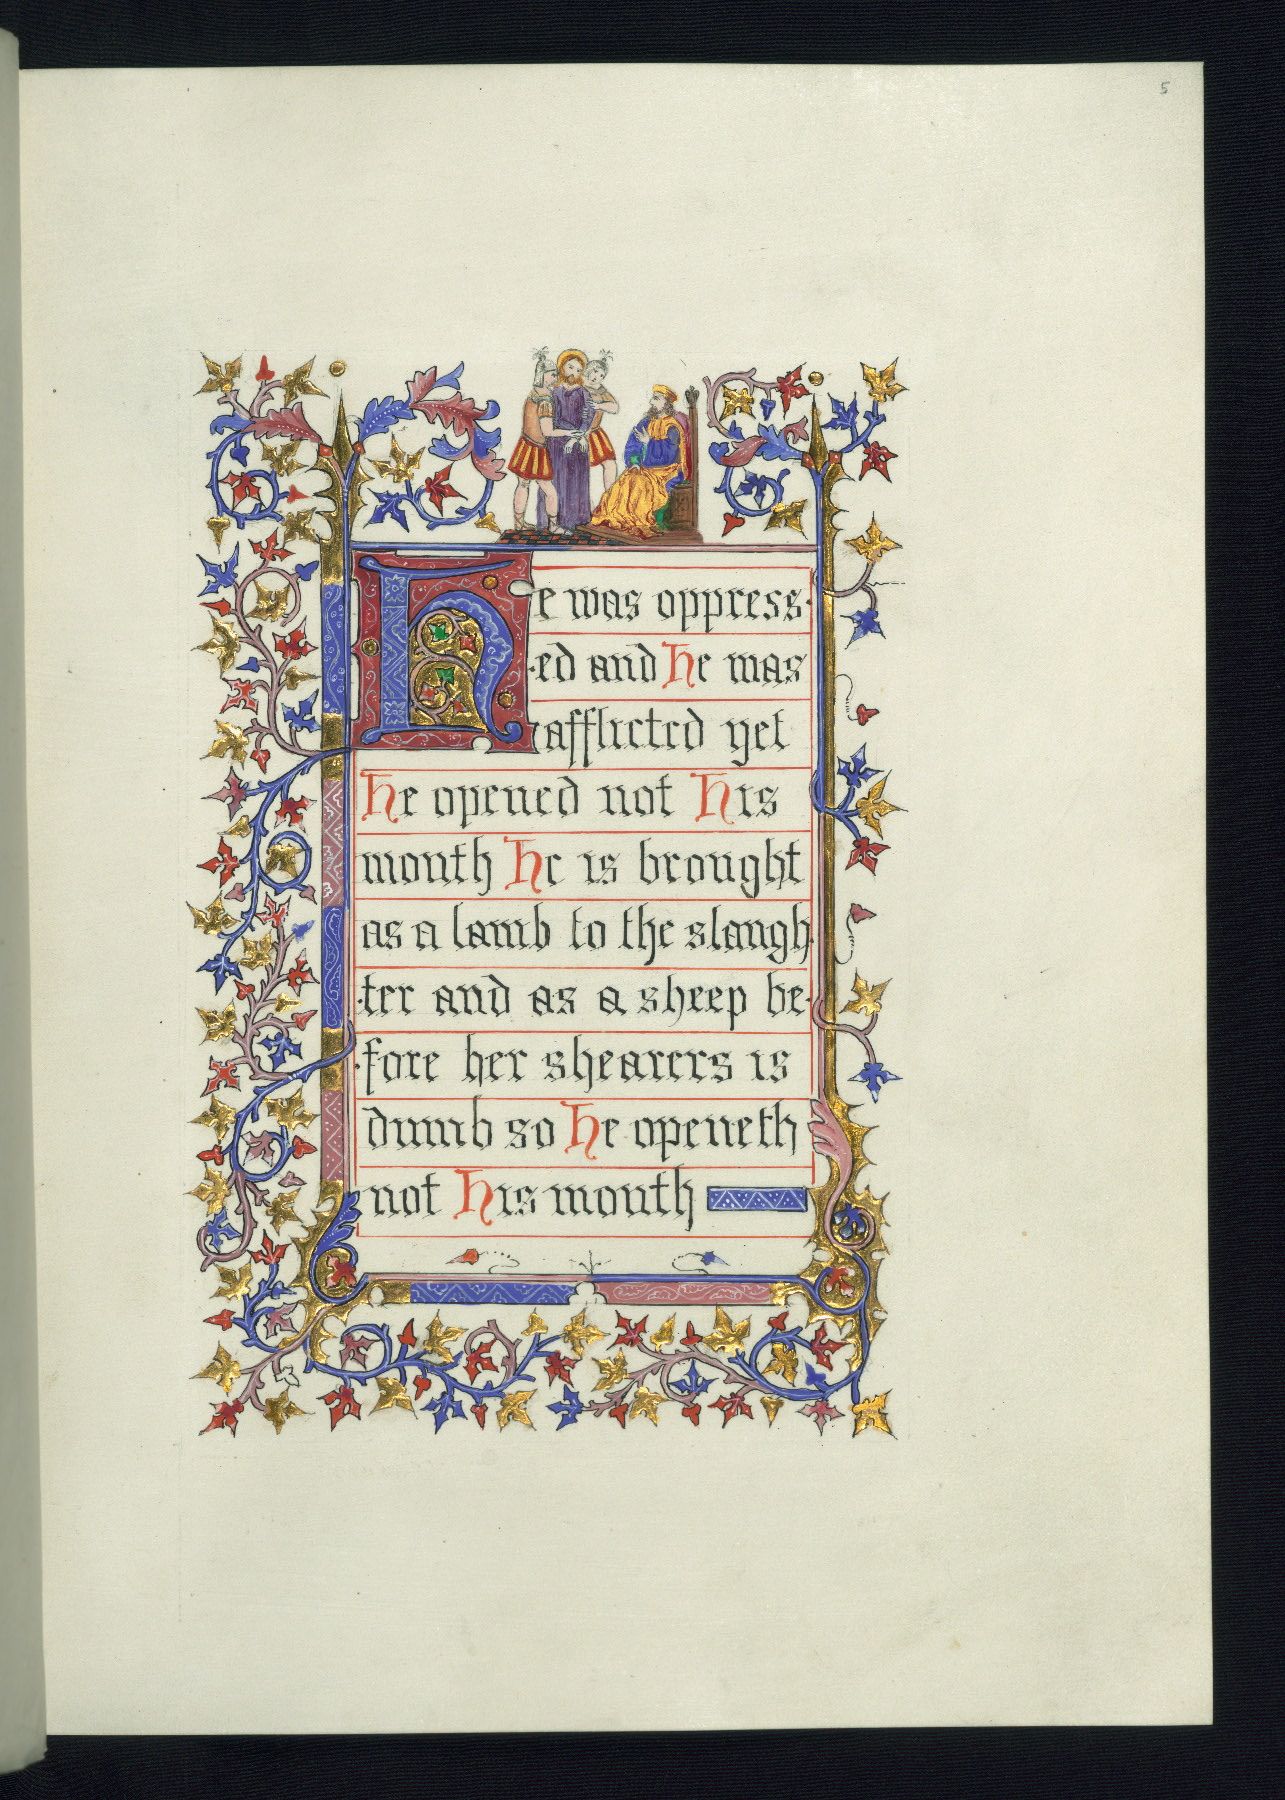 5
He was oppress
ed and He was
afflicted yet
He opened not His
mouth He is brought
as a lamb to the slaugh
ter and as a sheep be
fore her shearers is
dumb so He openeth
not His mouth